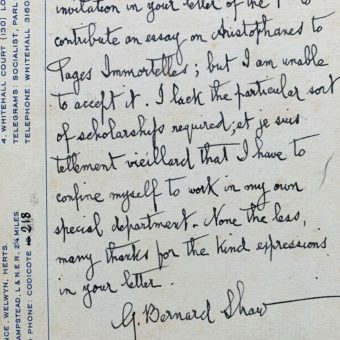 invitation in your letter of the 1st to
contribute an essay on Aristophanes to
Pages Immortelles; but I am unable
to accept it. I lack the particular sort
of scholarship required; et je suis
tellement vieillard that I have to
confine myself to work in my own
special department. None the less,
many thanks for the kind expressions
in your letter.
G. Bernard Shaw
4, WHITEHALL COURT (130) LO
TELEGRAMS: SOCIALIST, PARL
TELEPHONE: WHITEHALL 3160
NCE, WELWYN, HERTS.
AMPSTEAD, L & N.E.R., 2¼ MILES
D PHONE: CODICOTE 218